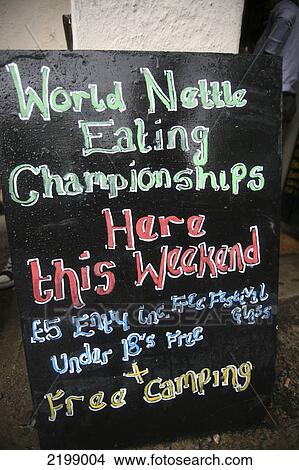 World Nettle
Eating
Championships
Here
this Weekend
£5 Entry inc Free Festival
Glass
Under 18's Free
+
Free Camping
fotosearch
2199004 www.fotosearch.com